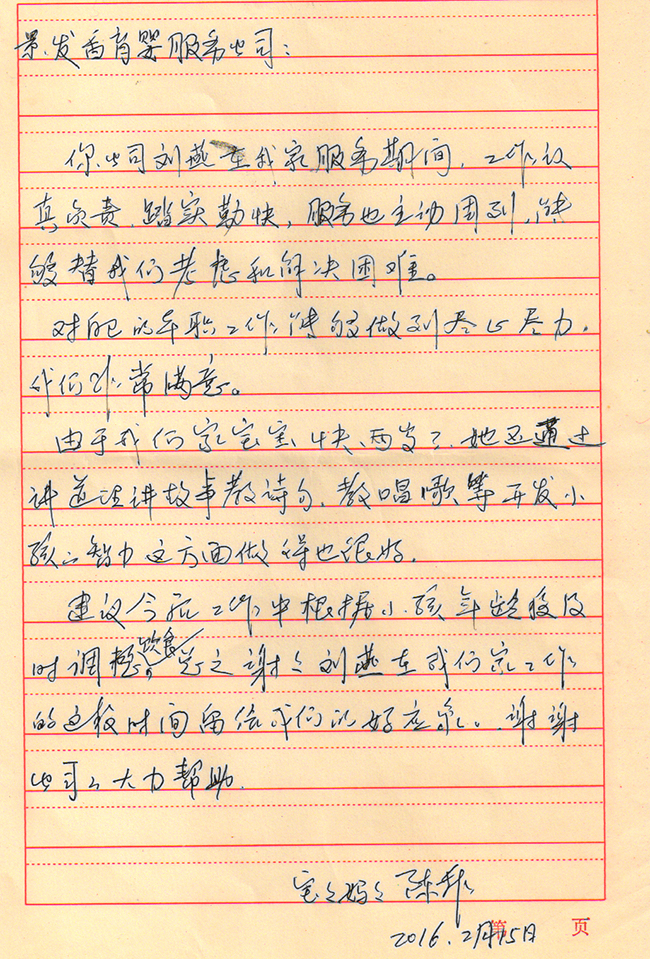 景发香育婴服务公司：
你公司刘燕在我家服务期间，工作认
真负责，踏实勤快，服务也主动周到，能
够替我们考虑和解决困难。
对自己的本职工作能够做到尽心尽力，
我们非常满意。
由于我们家宝宝快两岁了，她还通过
讲道理讲故事教诗句，教唱歌等开发小
孩的智力这方面做得也很好。
建议今后工作中根据小孩年龄段及
时调整饮食，总之谢谢刘燕在我们家工作
的这段时间留给我们的好印象。谢谢
公司的大力帮助。
宝宝妈妈 陈
2016.2月15日
第 页